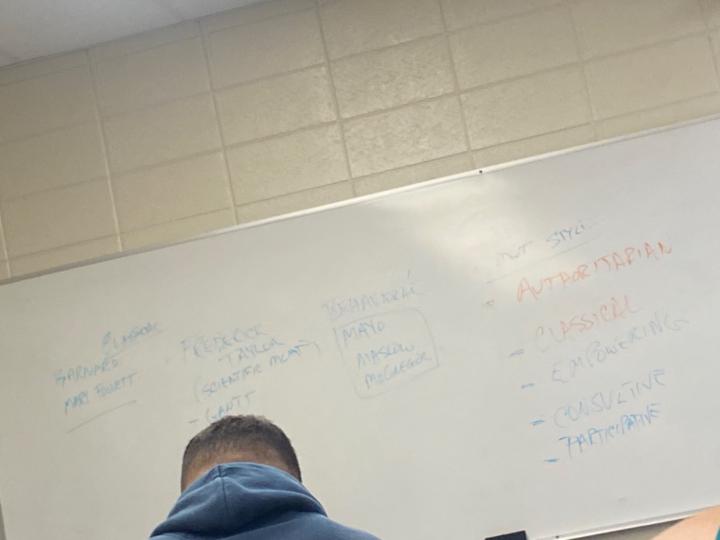 BARNARD
MARY FOLLETT
FREDERICK
TAYLOR
(SCIENTIFIC MGMT)
- GANTT
MAYO
MASLOW
McGREGOR
MGT STYLE
- AUTHORITARIAN
- CLASSICAL
- EMPOWERING
- CONSULTIVE
- PARTICIPATIVE